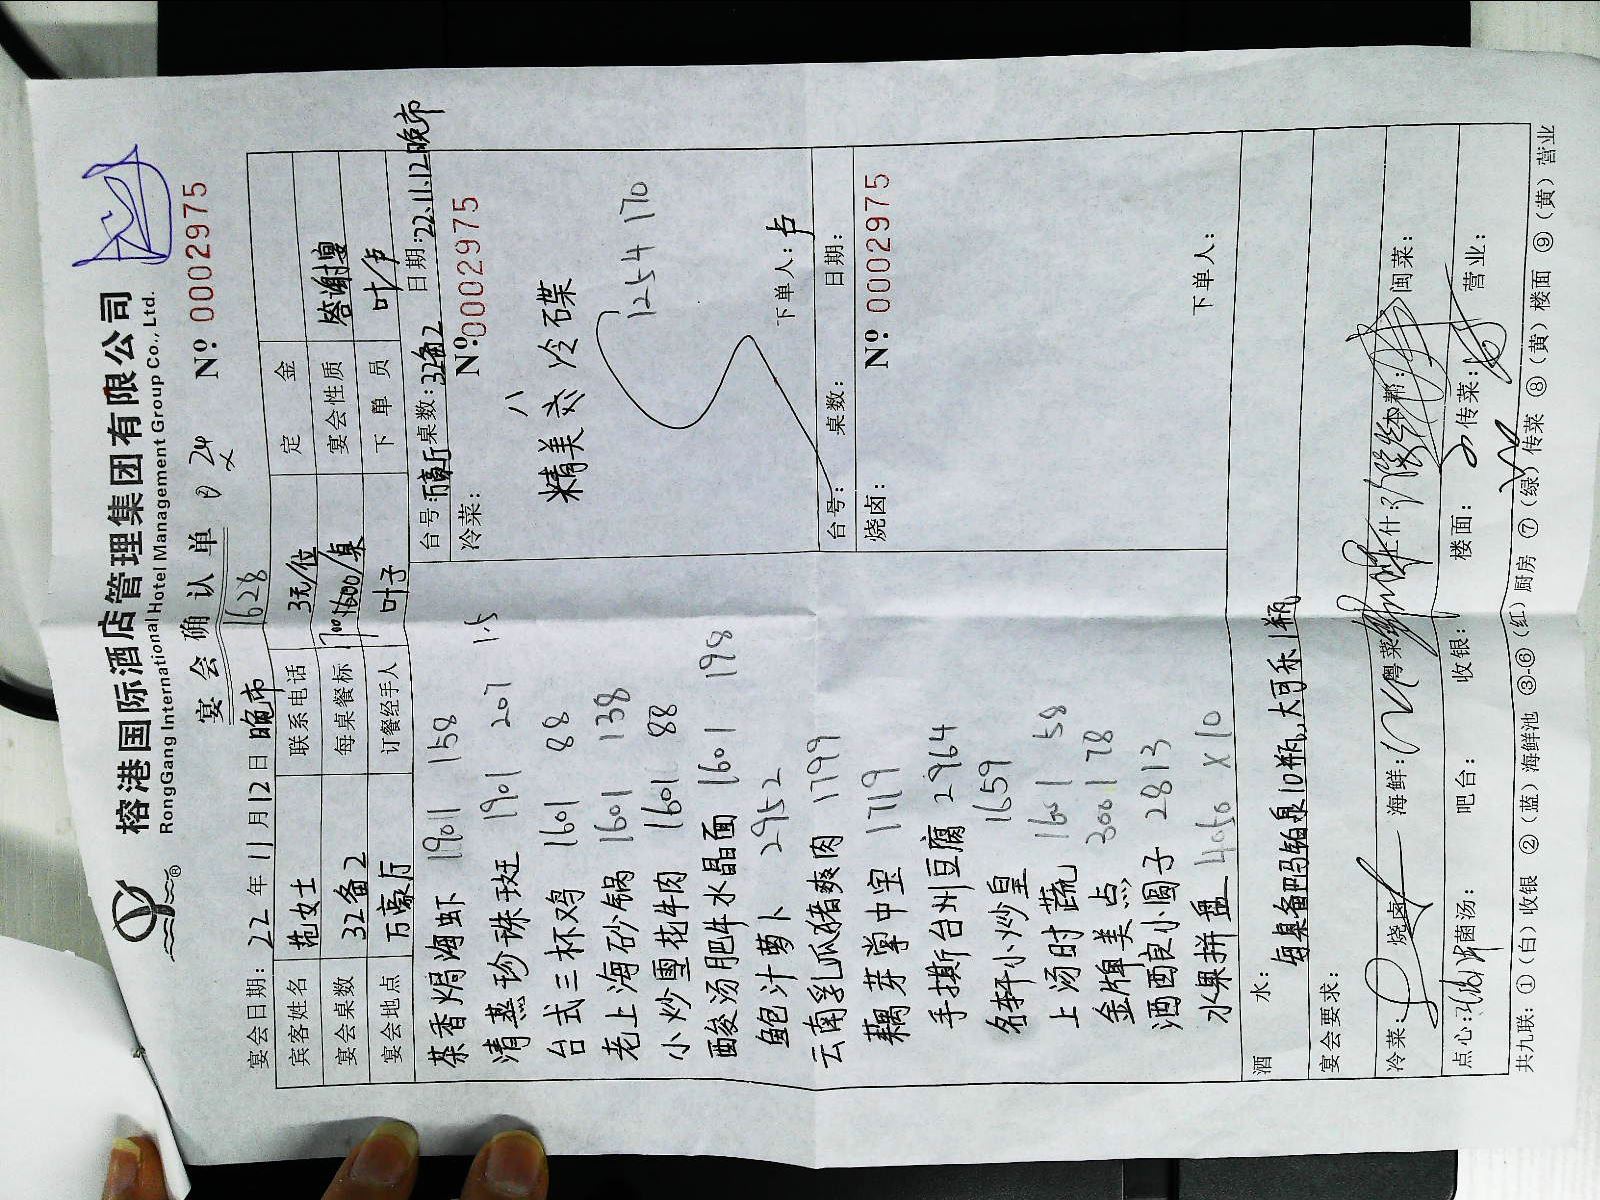 榕港国际酒店管理集团有限公司
RongGang International Hotel Management Group Co., Ltd.
宴会确认单
№ 0002975
宴会日期: 22 年 11 月 12 日 晚市 1628
宾客姓名 范女士 联系电话 3元/位 定金
宴会桌数 32备2 每桌餐标 1600/桌 宴会性质 答谢宴
宴会地点 万豪厅 订餐经手人 叶子 下单员 叶/卢
茶香焗海虾 1901 158
清蒸珍珠斑 1901 207 1.5
台式三杯鸡 1601 88
老上海砂锅 1601 138
小炒雪花牛肉 1601 88
酸汤肥牛水晶面 1601 198
鲍汁萝卜 2952
云南乳瓜猪爽肉 1799
藕芽掌中宝 1719
手撕台州豆腐 2964
名轩小炒皇 1659
上汤时蔬 1601 58
金牌美点 3001 78
酒酿小圆子 2813
水果拼盘 4050 X 10
台号: 万豪厅 桌数: 32备2 日期: 22.11.12晚市
冷菜: № 0002975
精美八冷碟
1254 170
下单人: 卢
台号: 桌数: 日期:
烧卤: № 0002975
下单人:
酒水: 每桌备巴马铂泉10瓶,大可乐1瓶
宴会要求:
冷菜: 烧卤: 海鲜: 粤菜: 上什: 本帮: 闽菜:
点心: 菌汤: 吧台: 收银: 楼面: 传菜: 营业:
共九联: ①(白)收银 ②(蓝)海鲜池 ③-⑥(红)厨房 ⑦(绿)传菜 ⑧(黄)楼面 ⑨(黄)营业